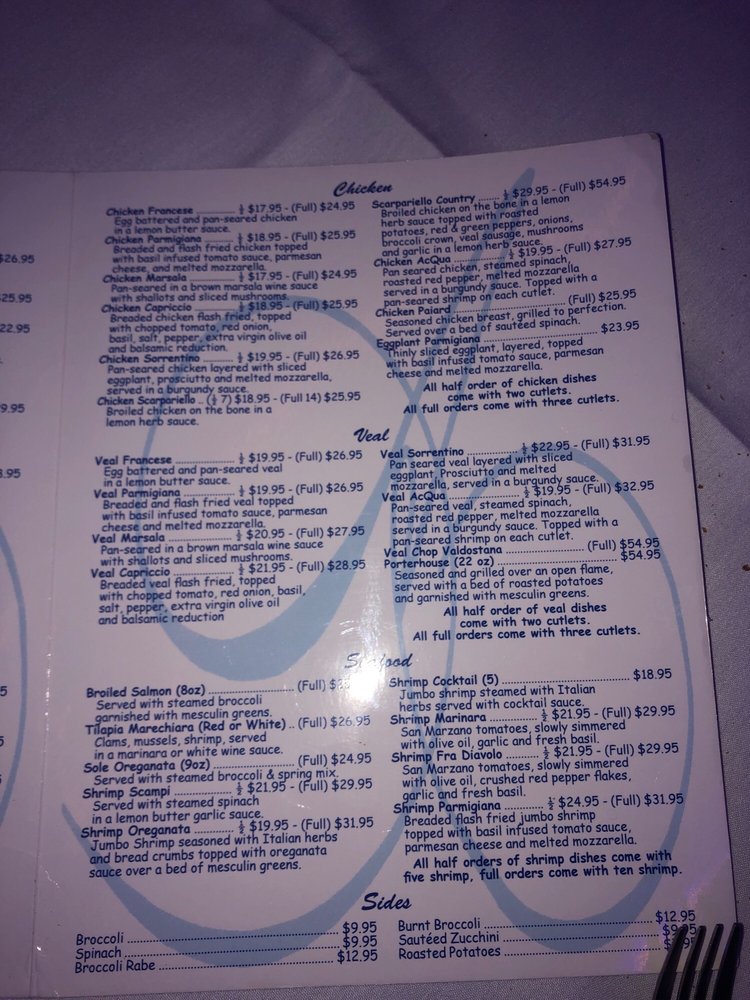 $26.95
25.95
22.95
9.95
3.95
5
5
5
Chicken
Chicken Francese ............ ½ $17.95 - (Full) $24.95
Egg battered and pan-seared chicken
in a lemon butter sauce.
Chicken Parmigiana ........ ½ $18.95 - (Full) $25.95
Breaded and flash fried chicken topped
with basil infused tomato sauce, parmesan
cheese, and melted mozzarella.
Chicken Marsala ............ ½ $17.95 - (Full) $24.95
Pan-seared in a brown marsala wine sauce
with shallots and sliced mushrooms.
Chicken Capriccio ........ ½ $18.95 - (Full) $25.95
Breaded chicken flash fried, topped
with chopped tomato, red onion,
basil, salt, pepper, extra virgin olive oil
and balsamic reduction.
Chicken Sorrentino ........ ½ $19.95 - (Full) $26.95
Pan-seared chicken layered with sliced
eggplant, prosciutto and melted mozzarella,
served in a burgundy sauce.
Chicken Scarpariello .. (½ 7) $18.95 - (Full 14) $25.95
Broiled chicken on the bone in a
lemon herb sauce.
Scarpariello Country ........ ½ $29.95 - (Full) $54.95
Broiled chicken on the bone in a lemon
herb sauce topped with roasted
potatoes, red & green peppers, onions,
broccoli crown, veal sausage, mushrooms
and garlic in a lemon herb sauce.
Chicken AcQua ............ ½ $19.95 - (Full) $27.95
Pan seared chicken, steamed spinach,
roasted red pepper, melted mozzarella
served in a burgundy sauce. Topped with a
pan-seared shrimp on each cutlet.
Chicken Paiard ........................ (Full) $25.95
Seasoned chicken breast, grilled to perfection.
Served over a bed of sautéed spinach.
Eggplant Parmigiana ........................ $23.95
Thinly sliced eggplant, layered, topped
with basil infused tomato sauce, parmesan
cheese and melted mozzarella.
All half order of chicken dishes
come with two cutlets.
All full orders come with three cutlets.
Veal
Veal Francese ................ ½ $19.95 - (Full) $26.95
Egg battered and pan-seared veal
in a lemon butter sauce.
Veal Parmigiana ............ ½ $19.95 - (Full) $26.95
Breaded and flash fried veal topped
with basil infused tomato sauce, parmesan
cheese and melted mozzarella.
Veal Marsala ................ ½ $20.95 - (Full) $27.95
Pan-seared in a brown marsala wine sauce
with shallots and sliced mushrooms.
Veal Capriccio ............ ½ $21.95 - (Full) $28.95
Breaded veal flash fried, topped
with chopped tomato, red onion, basil,
salt, pepper, extra virgin olive oil
and balsamic reduction
Veal Sorrentino ............ ½ $22.95 - (Full) $31.95
Pan seared veal layered with sliced
eggplant, Prosciutto and melted
mozzarella, served in a burgundy sauce.
Veal AcQua ................ ½ $19.95 - (Full) $32.95
Pan-seared veal, steamed spinach,
roasted red pepper, melted mozzarella
served in a burgundy sauce. Topped with a
pan-seared shrimp on each cutlet.
Veal Chop Valdostana ................ (Full) $54.95
Porterhouse (22 oz) ........................ $54.95
Seasoned and grilled over an open flame,
served with a bed of roasted potatoes
and garnished with mesculin greens.
All half order of veal dishes
come with two cutlets.
All full orders come with three cutlets.
Seafood
Broiled Salmon (8oz) ........................ (Full)
Served with steamed broccoli
garnished with mesculin greens.
Tilapia Marechiara (Red or White) .. (Full) $26.95
Clams, mussels, shrimp, served
in a marinara or white wine sauce.
Sole Oreganata (9oz) ........................ (Full) $24.95
Served with steamed broccoli & spring mix.
Shrimp Scampi ............ ½ $21.95 - (Full) $29.95
Served with steamed spinach
in a lemon butter garlic sauce.
Shrimp Oreganata ........ ½ $19.95 - (Full) $31.95
Jumbo Shrimp seasoned with Italian herbs
and bread crumbs topped with oreganata
sauce over a bed of mesculin greens.
Shrimp Cocktail (5) ........................ $18.95
Jumbo shrimp steamed with Italian
herbs served with cocktail sauce.
Shrimp Marinara ............ ½ $21.95 - (Full) $29.95
San Marzano tomatoes, slowly simmered
with olive oil, garlic and fresh basil.
Shrimp Fra Diavolo ........ ½ $21.95 - (Full) $29.95
San Marzano tomatoes, slowly simmered
with olive oil, crushed red pepper flakes,
garlic and fresh basil.
Shrimp Parmigiana ........ ½ $24.95 - (Full) $31.95
Breaded flash fried jumbo shrimp
topped with basil infused tomato sauce,
parmesan cheese and melted mozzarella.
All half orders of shrimp dishes come with
five shrimp, full orders come with ten shrimp.
Sides
Broccoli ........................ $9.95
Spinach ........................ $9.95
Broccoli Rabe ........................ $12.95
Burnt Broccoli ........................ $12.95
Sautéed Zucchini ........................
Roasted Potatoes ........................